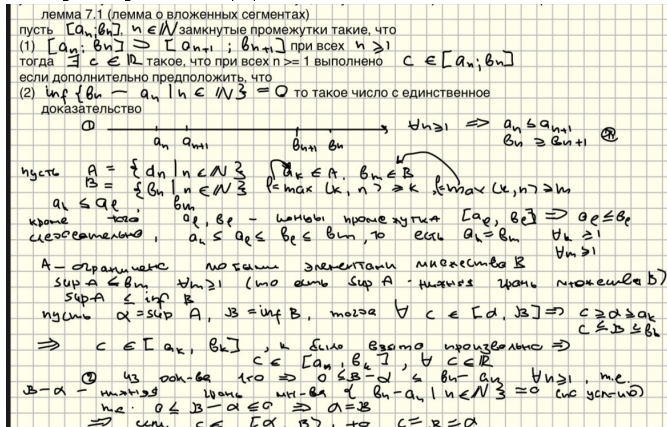 лемма 7.1 (лемма о вложенных сегментах)
пусть [aₙ; bₙ], n ∈ ℕ замкнутые промежутки такие, что
(1) [aₙ; bₙ] ⊃ [aₙ₊₁; bₙ₊₁] при всех n ⩾ 1
тогда ∃ c ∈ ℝ такое, что при всех n >= 1 выполнено c ∈ [aₙ; bₙ]
если дополнительно предположить, что
(2) inf {bₙ − aₙ | n ∈ ℕ} = 0 то такое число с единственное
доказательство
① aₙ aₙ₊₁ bₙ₊₁ bₙ ∀n⩾1 ⇒ aₙ ≤ aₙ₊₁
bₙ ⩾ bₙ₊₁ ⊛
пусть A = {dₙ | n ∈ ℕ} aₖ ∈ A, bₘ ∈ B
B = {bₙ | n ∈ ℕ} ℓ=max(k, n) ⩾ k, ℓ=max(k,n) ⩾ m
aₖ ≤ aₑ, bₘ
кроме того aₑ, bₑ – концы промежутка [aₑ, bₑ] ⇒ aₑ≤bₑ
следовательно, aₖ ≤ aₑ ≤ bₑ ≤ bₘ, то есть aₖ = bₘ ∀k ⩾1
∀m⩾1
A – ограничено любыми элементами множества B
sup A ≤ bₘ ∀m⩾1 (то есть sup A - нижняя грань множества B)
sup A ≤ inf B
пусть α = sup A, B = inf B, тогда ∀ c ∈ [α, B] ⇒ c ⩾ α ⩾ aₖ
c ≤ B ≤ bₖ
⇒ c ∈ [aₖ, bₖ], k было взято произвольно ⇒
c ∈ [aₙ, bₖ], ∀ c ∈ ℝ
② из док-ва что ⇒ 0 ≤ B − α ≤ bₙ − aₙ ∀n⩾1, т.е.
B−α – нижняя грань мн-ва {bₙ−aₙ | n ∈ ℕ} = 0 (по усл-ю)
т.е. 0 ≤ B − α ≤ 0 ⇒ α = B
⇒ c ∈ [α, B], то c = B = α